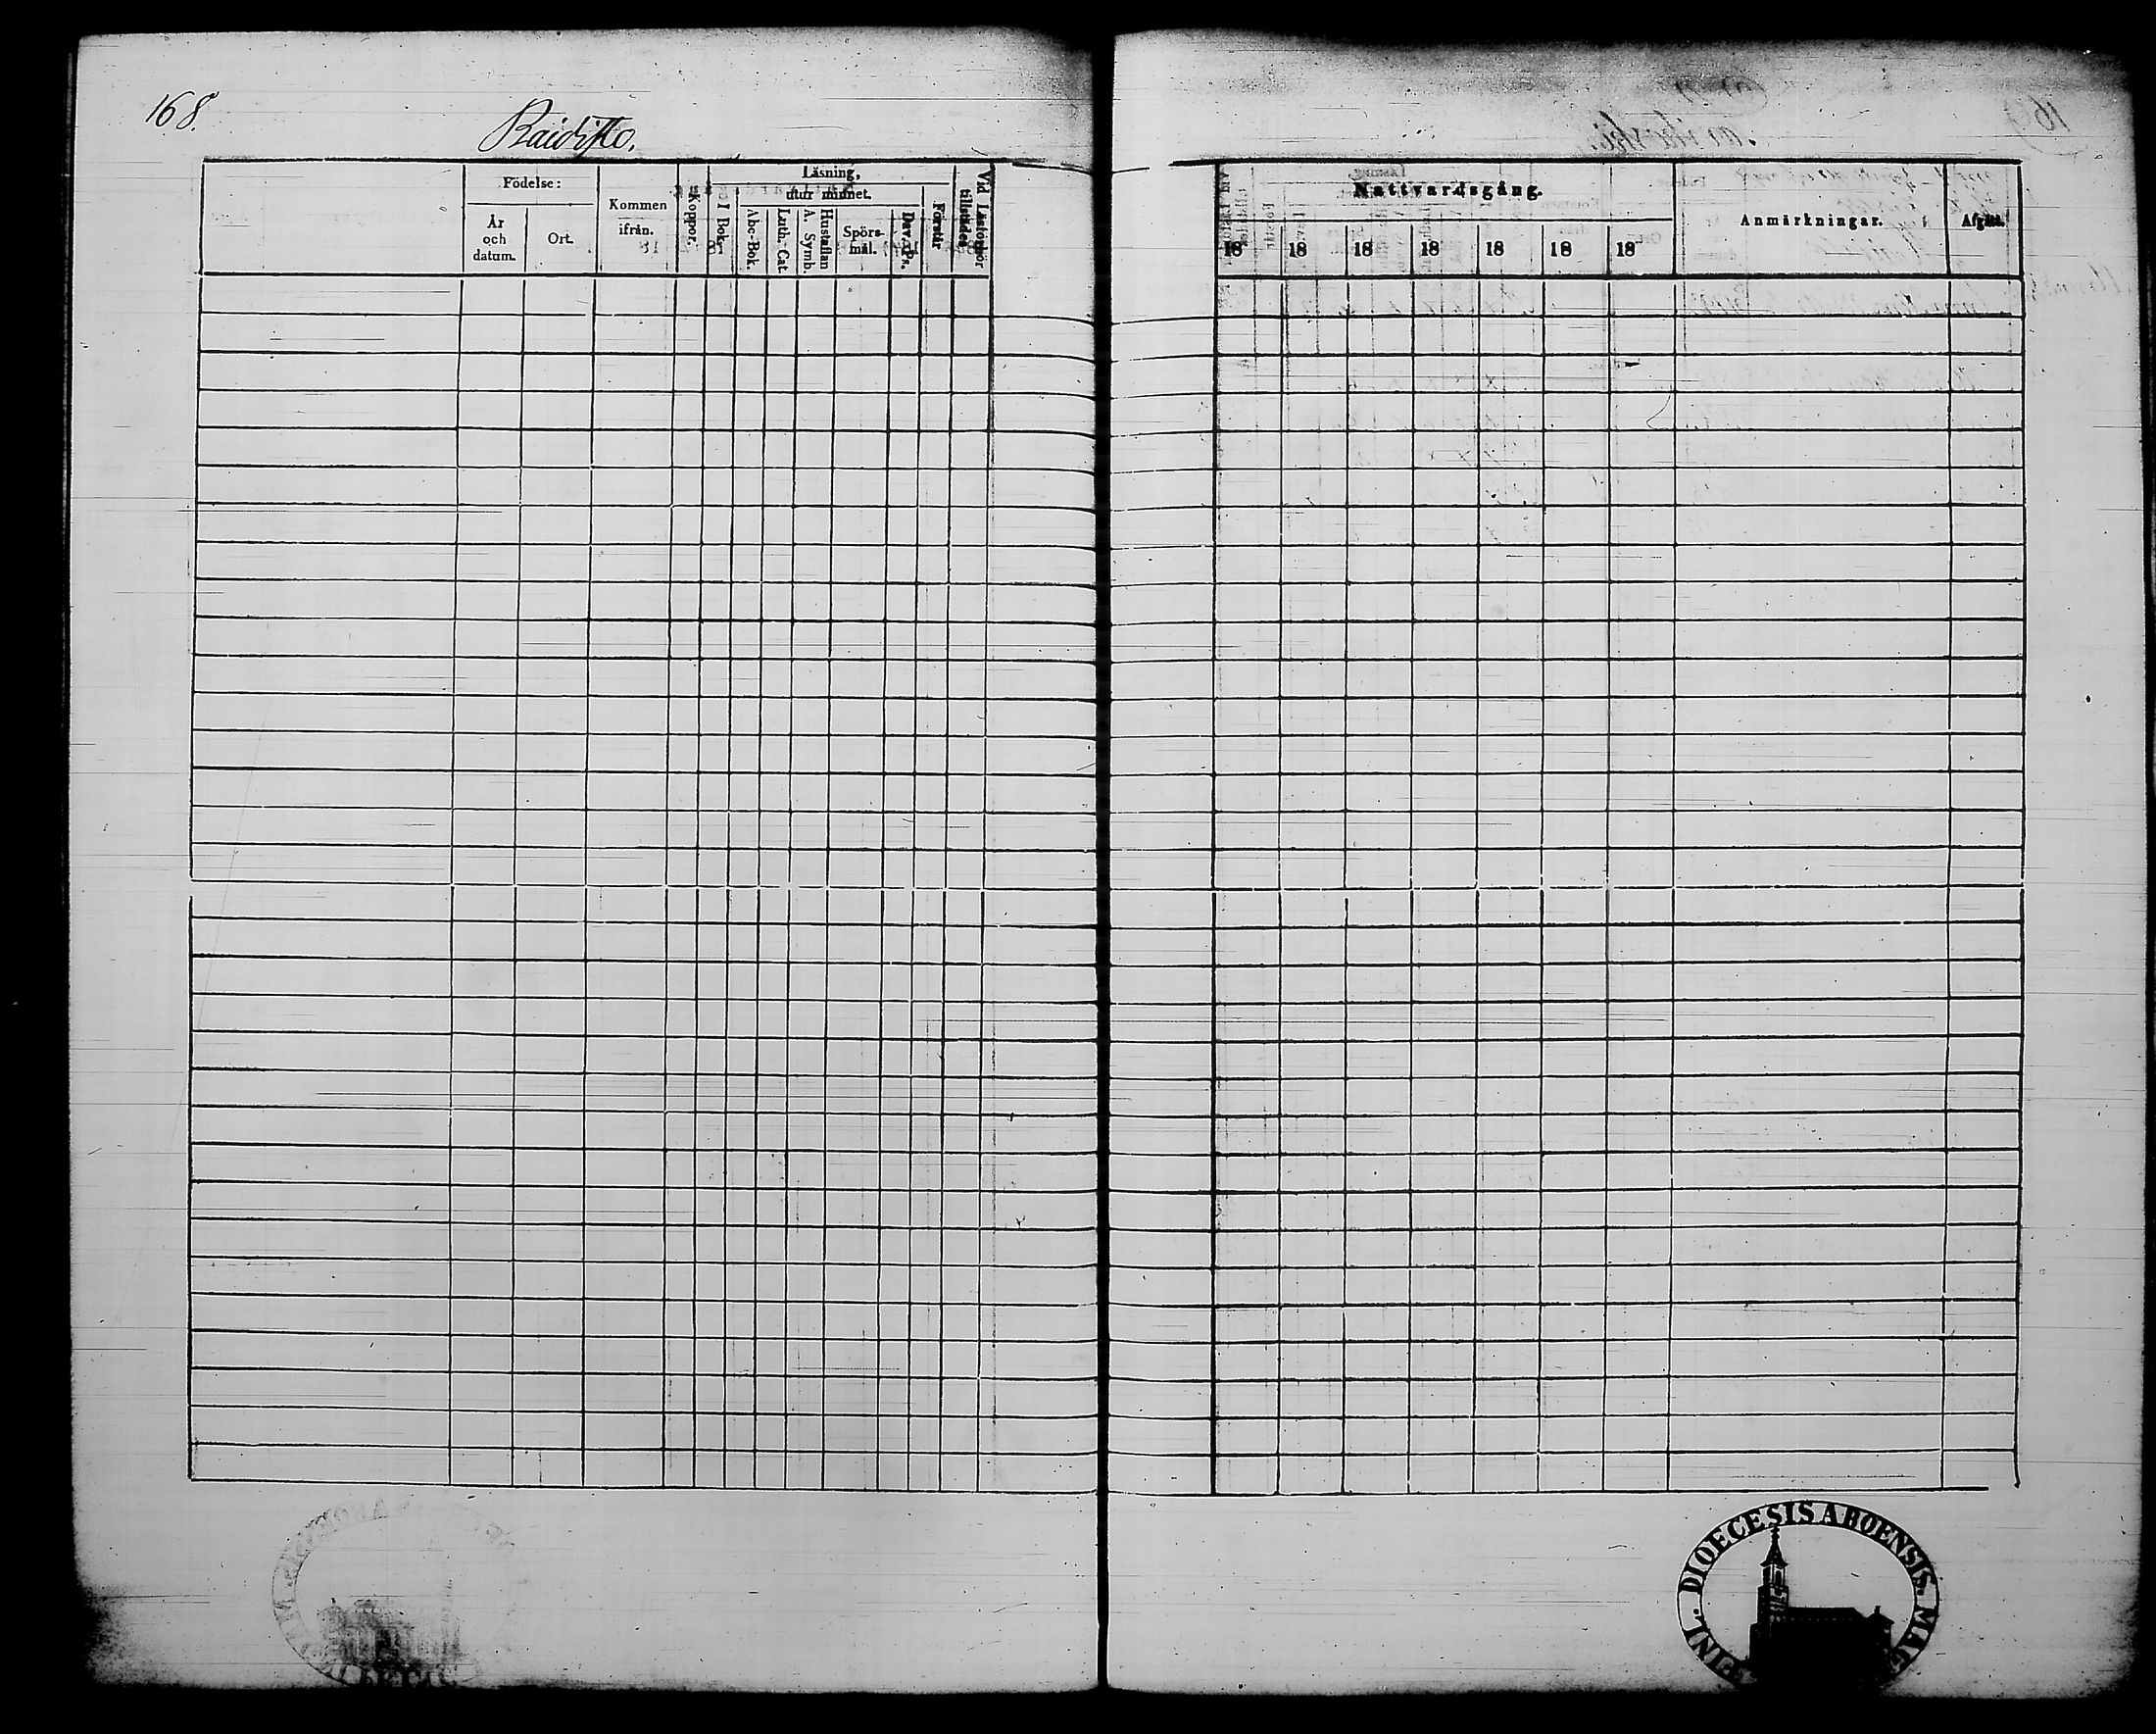 168.
Raidisto.
Födelse:
År och datum.
Ort.
Kommen ifrån.
Koppor.
Läsning,
I Bok.
utur minnet.
Abc-Bok.
Luth. Cat
Hustaflan
A. Symb.
Spörs-
mål.
Dav. Ps.
Förstår
Vid Läsförhör
tillstädes
Nattvardsgång.
18 18 18 18 18 18 18
Anmärkningar.
Afgått.
DIOECESIS ABOENSIS. MAG
FINL.